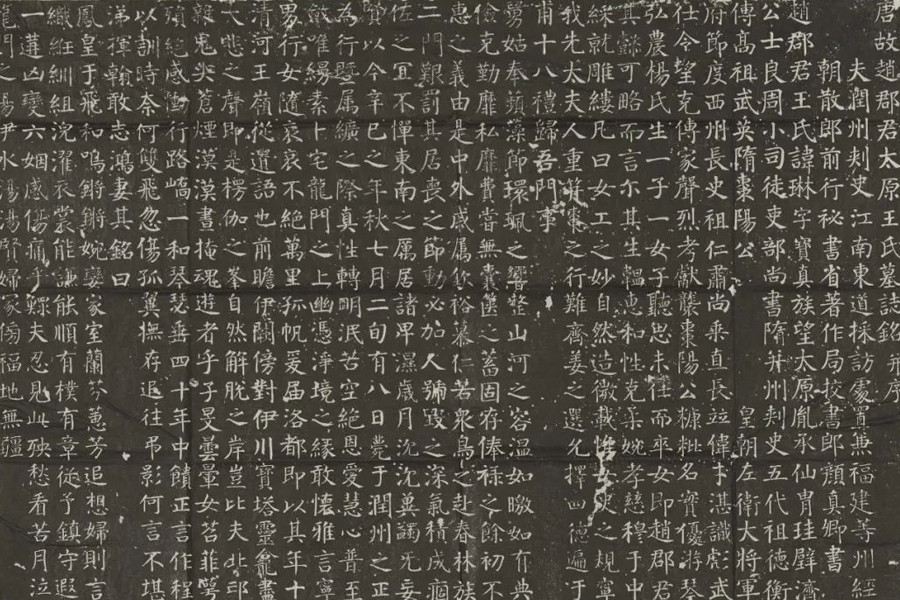 唐故趙郡君太原王氏墓誌銘并序
夫潤州刺史江南東道採訪處置兼福建等州經
朝散郎前行祕書省著作局校書郎顏真卿書
趙郡君王氏諱琳字寶真族望太原胤承仙胄珪璧濟
公士良周小司徒吏部尚書隋并州刺史五代祖德衡
傳高祖武奐隋棗陽公 皇朝左衛大將軍
府節度西州長史祖仁肅尚乘直長竝偉才湛識彪武
仕令望克傳家聲烈考獻襲棗陽公糠粃名實優游琴
弘農楊氏生一子一女子聽忠未仕而卒女即趙郡君
其繇可略而言尒其生韞惠和性克柔婉孝慈穆于中
綵就雕縷凡曰女工之妙自然造微載史之規寧
我先太夫人重之行難齊姜之選允擇四德遍于
甫十八禮歸吾門事
舅姑奉蘋藻節環珮之響整山河之容溫如暾如有典
儉克勤靡私靡費嘗無囊篋之蓄固存俸祿之餘初不
惠之義由是中外戚属欽裕慕仁若衆鳥之赴春林族
二門艱罰其居喪之節動必加人號毀之深氣積成痼
佐之宜不憚東南之厲居諸卑濕歲月沉沉冀蠲无妄
賢以今辛巳之年秋七月二旬有八日薨于潤州之正
為行暨属纊之際真性轉明泯苦空絕恩愛慧心普至
斂唯縵素卜宅龍門之上幽憑淨境之緣敢懷雅言寧
男行女隨哀哀不絕萬里孤帆爰届洛都即以其年十
清河王嶺從遺語也前瞻伊闕傍對伊川寶塔靈龕盡
大悲之聲即是楞伽之峯自然解脫之岸豈比夫北邙
鬼哭蒼煙漠漠晝掩魂遊者乎子旻曇暈女苕菲萼
殞絕感慟行路嶠一和琴瑟垂四十年中饋正言作程
以訓時奈何雙飛忽傷孤翼撫存追往弔影何言不堪
涕揮翰敢志鴻妻其銘曰
鳳皇于飛和鳴鏘鏘婉孌家室蘭芬蕙芳追想婦則言
織紝紃組沈濯衣裳能謙能順有樸有章從予鎮守遐
一遘凶變六姻感傷痛乎鰥夫忍見此殃愁看苦月泣
龍門之陽尹水湯湯賢婦冢傍福地無疆